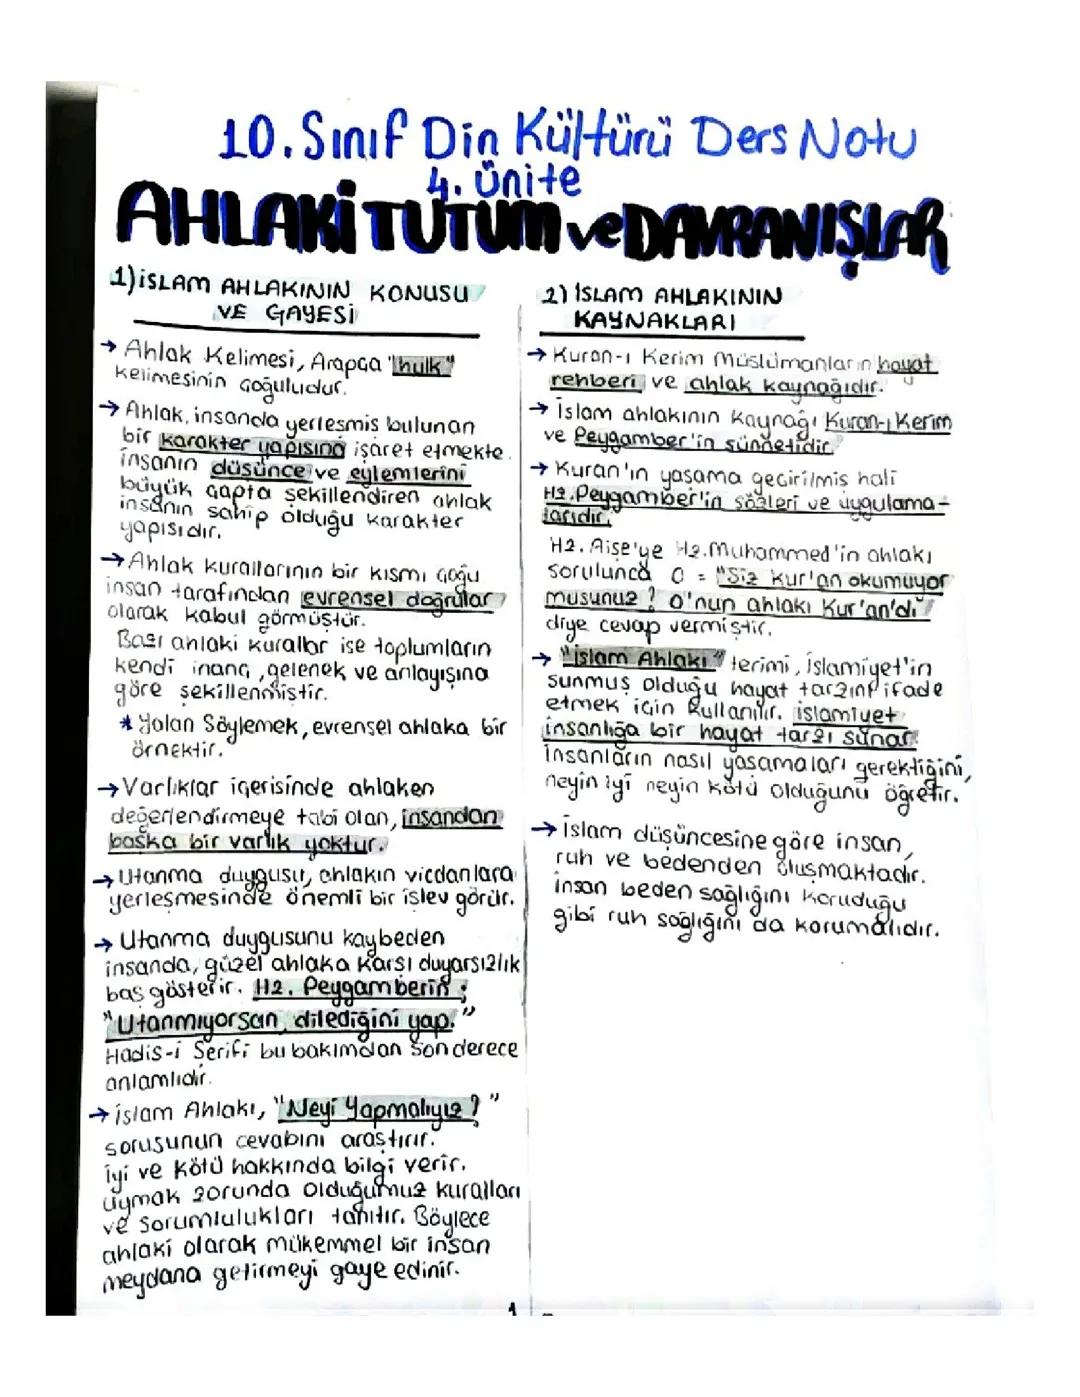 10. Sınıf Din Kültürü Ders Notu
4. Ünite
AHLAKİ TUTUM ve DAVRANIŞLAR
1) İSLAM AHLAKININ KONUSU
VE GAYESİ
→ Ahlak Kelimesi, Arapça "hulk"
kelimesinin çoğuludur.
→ Ahlak, insanda yerleşmiş bulunan
bir karakter yapısına işaret etmekte.
İnsanın düşünce ve eylemlerini
büyük çapta şekillendiren ahlak
insanın sahip olduğu karakter
yapısıdır.
→ Ahlak kurallarının bir kısmı çoğu
insan tarafından evrensel doğrular
olarak kabul görmüştür.
Bazı ahlaki kurallar ise toplumların
kendi inanç, gelenek ve anlayışına
göre şekillenmiştir.
* Yalan Söylemek, evrensel ahlaka bir
örnektir.
→ Varlıklar içerisinde ahlaken
değerlendirmeye tabi olan, insandan
başka bir varlık yoktur.
→ Utanma duygusu, ahlakın vicdanlara
yerleşmesinde önemli bir işlev görür.
→ Utanma duygusunu kaybeden
insanda, güzel ahlaka karşı duyarsızlık
baş gösterir. Hz. Peygamberin;
"Utanmıyorsan, dilediğini yap."
Hadis-i Şerifi bu bakımdan son derece
anlamlıdır.
→ İslam Ahlakı, "Neyi Yapmalıyız?"
sorusunun cevabını araştırır.
İyi ve kötü hakkında bilgi verir.
Uymak zorunda olduğumuz kuralları
ve sorumlulukları tanıtır. Böylece
ahlaki olarak mükemmel bir insan
meydana getirmeyi gaye edinir.
2) İSLAM AHLAKININ
KAYNAKLARI
→ Kuran-ı Kerim Müslümanların hayat
rehberi ve ahlak kaynağıdır.
→ İslam ahlakının kaynağı Kuran-ı Kerim
ve Peygamber'in sünnetidir.
→ Kuran'ın yaşama geçirilmiş hali
Hz. Peygamber'in sözleri ve uygulama-
larıdır.
Hz. Aişe'ye Hz. Muhammed'in ahlakı
sorulunca O = "Siz Kur'an okumuyor
musunuz? O'nun ahlakı Kur'an'dı"
diye cevap vermiştir.
→ "İslam Ahlakı" terimi, İslamiyet'in
sunmuş olduğu hayat tarzını ifade
etmek için kullanılır. İslamiyet
insanlığa bir hayat tarzı sunar.
İnsanların nasıl yaşamaları gerektiğini,
neyin iyi neyin kötü olduğunu öğretir.
→ İslam düşüncesine göre insan,
ruh ve bedenden oluşmaktadır.
İnsan beden sağlığını koruduğu
gibi ruh sağlığını da korumalıdır.
1